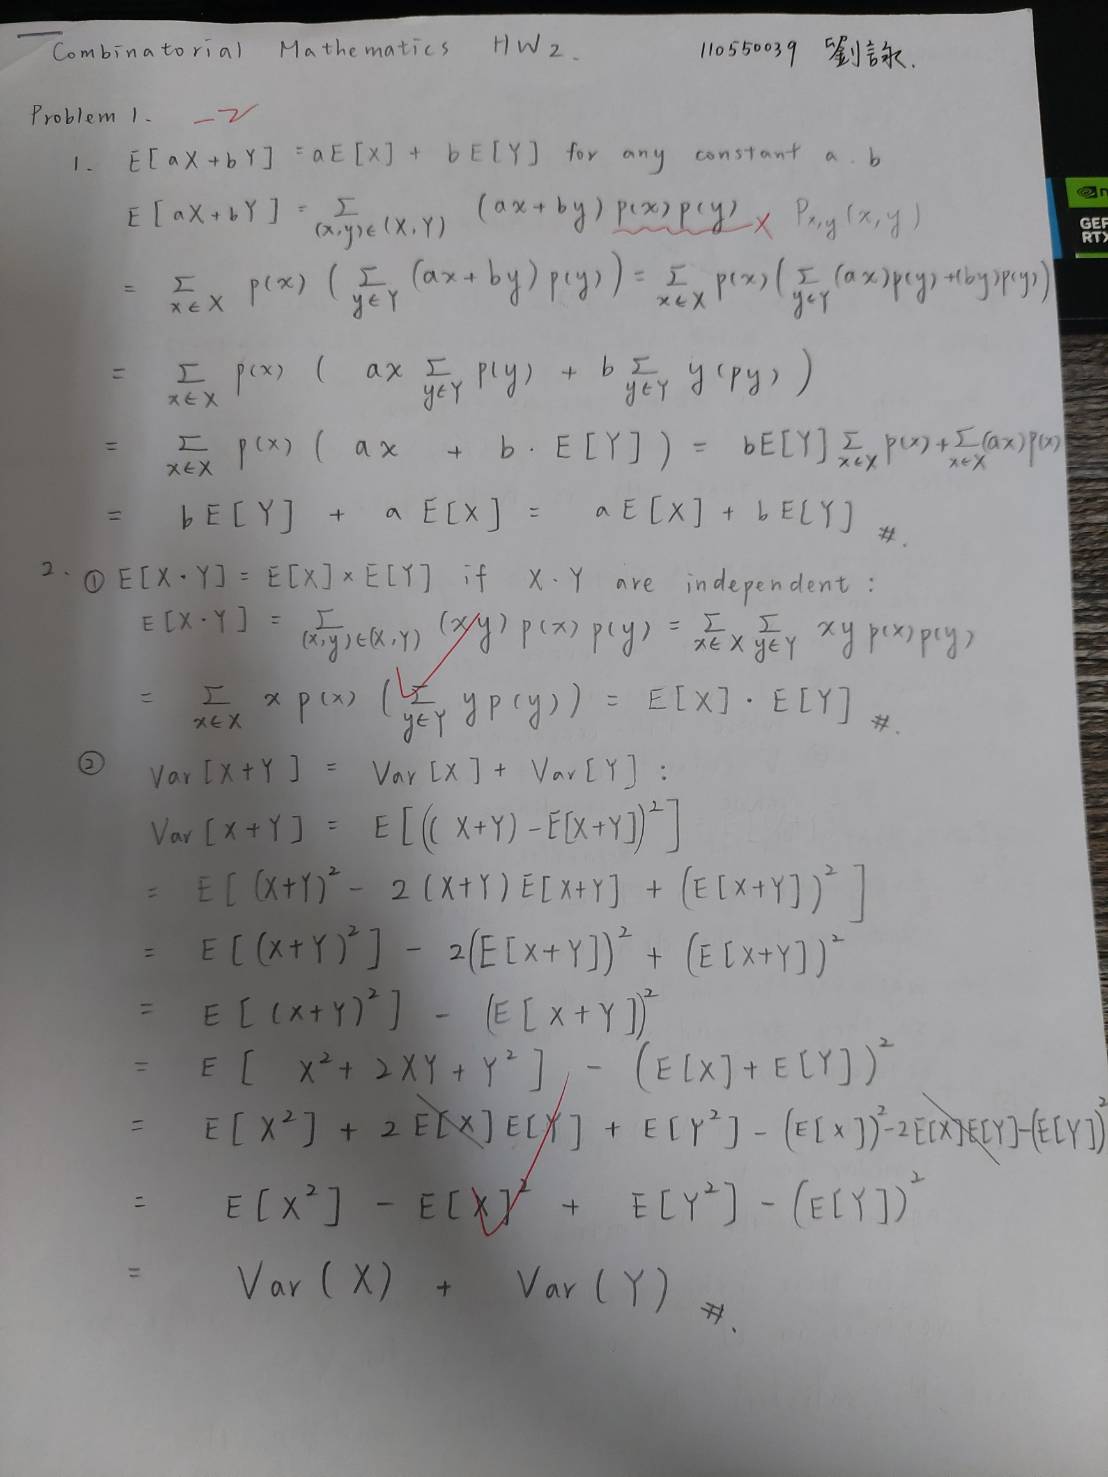 Combinatorial Mathematics HW2. 110550039 劉詠.
Problem 1. -2
1. E[aX+bY] = aE[X] + bE[Y] for any constant a.b
E[aX+bY] = Σ_{(x,y)∈(X,Y)} (ax+by) p(x)p(y) X P_{x,y}(x,y)
= Σ_{x∈X} p(x) ( Σ_{y∈Y} (ax+by) p(y) ) = Σ_{x∈X} p(x) ( Σ_{y∈Y} (ax)p(y)+(by)p(y) )
= Σ_{x∈X} p(x) ( ax Σ_{y∈Y} p(y) + b Σ_{y∈Y} y(py) )
= Σ_{x∈X} p(x) ( ax + b · E[Y] ) = bE[Y] Σ_{x∈X} p(x) + Σ_{x∈X} (ax)p(x)
= bE[Y] + aE[X] = aE[X] + bE[Y] #.
2. ① E[X·Y] = E[X]×E[Y] if X·Y are independent :
E[X·Y] = Σ_{(x,y)∈(X,Y)} (xy) p(x) p(y) = Σ_{x∈X} Σ_{y∈Y} xy p(x)p(y)
= Σ_{x∈X} x p(x) ( Σ_{y∈Y} y p(y) ) = E[X] · E[Y] #.
② Var[X+Y] = Var[X] + Var[Y] :
Var[X+Y] = E[((X+Y)-E[X+Y])²]
= E[(X+Y)² - 2(X+Y)E[X+Y] + (E[X+Y])²]
= E[(X+Y)²] - 2(E[X+Y])² + (E[X+Y])²
= E[(X+Y)²] - (E[X+Y])²
= E[X² + 2XY + Y²] - (E[X] + E[Y])²
= E[X²] + 2E[X]E[Y] + E[Y²] - (E[X])² - 2E[X]E[Y] - (E[Y])²
= E[X²] - E[X]² + E[Y²] - (E[Y])²
= Var(X) + Var(Y) #.